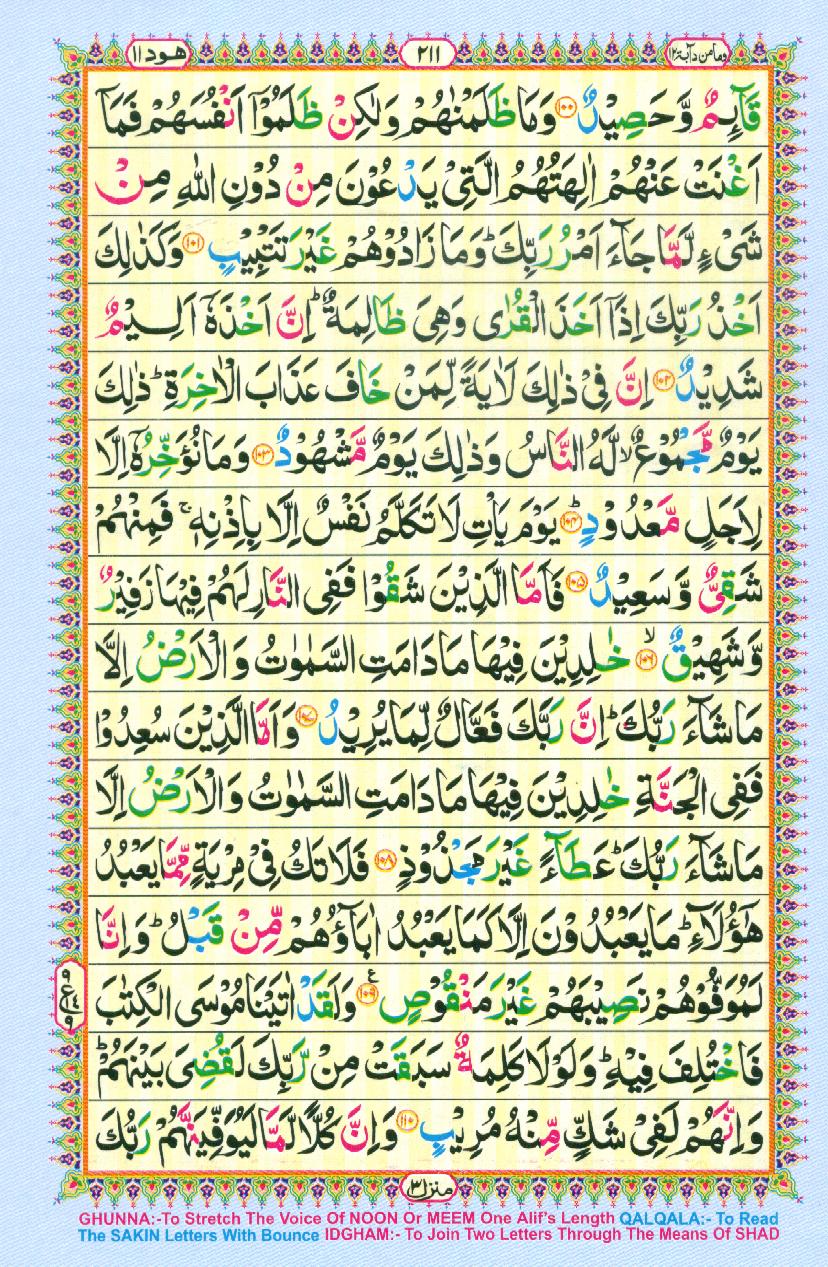 وما من دآبة ١٢
٢١١
هود ١١
قَآئِمٌ وَّحَصِيْدٌ ﴿١٠٠﴾ وَمَا ظَلَمْنٰهُمْ وَلٰكِنْ ظَلَمُوْۤا اَنْفُسَهُمْ فَمَاۤ
اَغْنَتْ عَنْهُمْ اٰلِهَتُهُمُ الَّتِىْ يَدْعُوْنَ مِنْ دُوْنِ اللّٰهِ مِنْ
شَىْءٍ لَّمَّا جَآءَ اَمْرُ رَبِّكَ ؕ وَمَا زَادُوْهُمْ غَيْرَ تَتْبِيْبٍ ﴿١٠١﴾ وَكَذٰلِكَ
اَخْذُ رَبِّكَ اِذَاۤ اَخَذَ الْقُرٰى وَهِىَ ظَالِمَةٌ ؕ اِنَّ اَخْذَهٗۤ اَلِيْمٌ
شَدِيْدٌ ﴿١٠٢﴾ اِنَّ فِىْ ذٰلِكَ لَاٰيَةً لِّمَنْ خَافَ عَذَابَ الْاٰخِرَةِ ؕ ذٰلِكَ
يَوْمٌ مَّجْمُوْعٌ ۙ لَّهُ النَّاسُ وَذٰلِكَ يَوْمٌ مَّشْهُوْدٌ ﴿١٠٣﴾ وَمَا نُؤَخِّرُهٗۤ اِلَّا
لِاَجَلٍ مَّعْدُوْدٍ ؕ ﴿١٠٤﴾ يَوْمَ يَاْتِ لَا تَكَلَّمُ نَفْسٌ اِلَّا بِاِذْنِهٖ ۚ فَمِنْهُمْ
شَقِىٌّ وَّسَعِيْدٌ ﴿١٠٥﴾ فَاَمَّا الَّذِيْنَ شَقُوْا فَفِى النَّارِ لَهُمْ فِيْهَا زَفِيْرٌ
وَّشَهِيْقٌ ۙ ﴿١٠٦﴾ خٰلِدِيْنَ فِيْهَا مَا دَامَتِ السَّمٰوٰتُ وَالْاَرْضُ اِلَّا
مَا شَآءَ رَبُّكَ ؕ اِنَّ رَبَّكَ فَعَّالٌ لِّمَا يُرِيْدُ ﴿١٠٧﴾ وَاَمَّا الَّذِيْنَ سُعِدُوْا
فَفِى الْجَنَّةِ خٰلِدِيْنَ فِيْهَا مَا دَامَتِ السَّمٰوٰتُ وَالْاَرْضُ اِلَّا
مَا شَآءَ رَبُّكَ ؕ عَطَآءً غَيْرَ مَجْذُوْذٍ ﴿١٠٨﴾ فَلَا تَكُ فِىْ مِرْيَةٍ مِّمَّا يَعْبُدُ
هٰۤؤُلَآءِ ؕ مَا يَعْبُدُوْنَ اِلَّا كَمَا يَعْبُدُ اٰبَآؤُهُمْ مِّنْ قَبْلُ ؕ وَاِنَّا
لَمُوَفُّوْهُمْ نَصِيْبَهُمْ غَيْرَ مَنْقُوْصٍ ﴿١٠٩﴾ ع وَلَقَدْ اٰتَيْنَا مُوْسَى الْكِتٰبَ
فَاخْتُلِفَ فِيْهِ ؕ وَلَوْلَا كَلِمَةٌ سَبَقَتْ مِنْ رَّبِّكَ لَقُضِىَ بَيْنَهُمْ ؕ
وَاِنَّهُمْ لَفِىْ شَكٍّ مِّنْهُ مُرِيْبٍ ﴿١١٠﴾ وَاِنَّ كُلًّا لَّمَّا لَيُوَفِّيَنَّهُمْ رَبُّكَ
منزل ٣
GHUNNA:-To Stretch The Voice Of NOON Or MEEM One Alif's Length QALQALA:- To Read
The SAKIN Letters With Bounce IDGHAM:- To Join Two Letters Through The Means Of SHAD